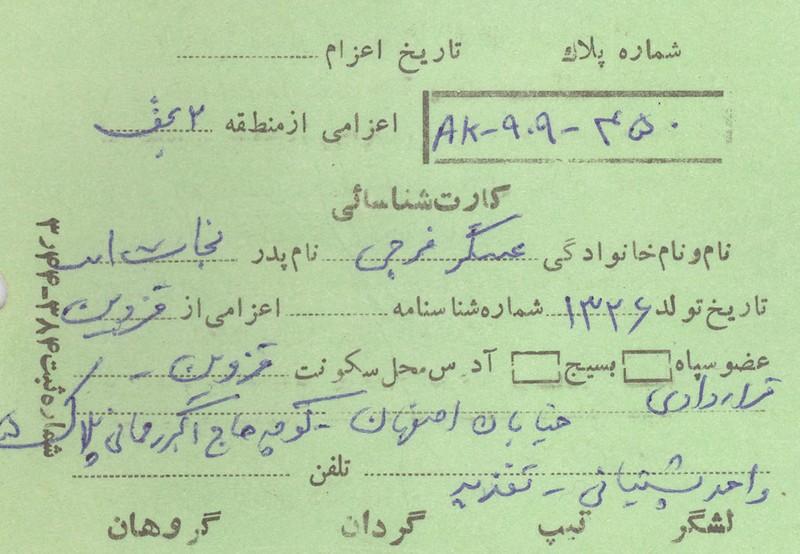 شماره پلاك تاریخ اعزام
AK-909-450 اعزامی ازمنطقه ۲
کارت شناسائی
نام ونام خانوادگی عسگر فرجی نام پدر نجات اله
تاریخ تولد ۱۳۲۶ شماره شناسنامه اعزامی از قزوین
عضو سپاه بسیج آدرس محل سکونت قزوین -
قراردادی
خیابان اصفهان - کوچه حاج اکبر رمانی پلاک
واحد پشتیبانی - تغذیه تلفن
لشگر تیپ گردان گروهان
شماره ثبت